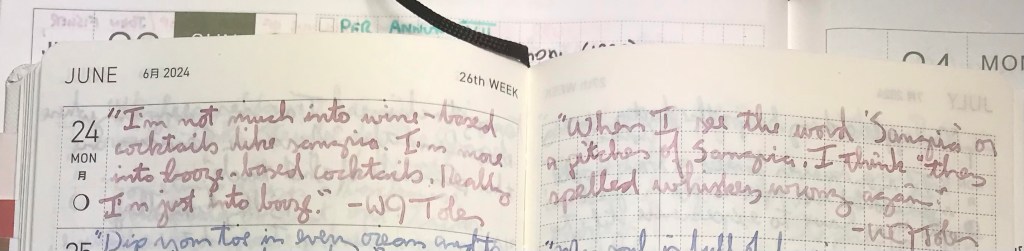 PER ANNUM
JUNE 6月 2024
26th WEEK
24
MON
月
"I'm not much into wine-based
cocktails like sangria. I'm more
into booze-based cocktails. Really
I'm just into booze." -WJ Toles
25
"Dip your toe in every ocean and to
"When I see the word 'Sangria' on
a pitcher of Sangria, I think "they
spelled whiskey wrong again."
-WJ Toles
24 MON
JULY